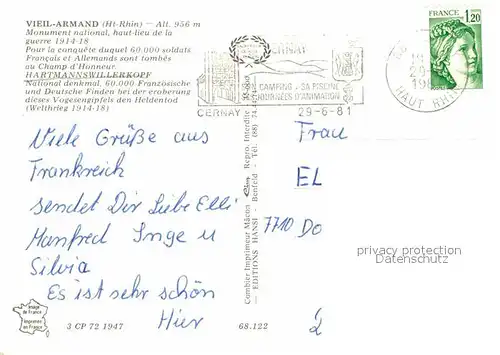 VIEIL-ARMAND (Ht-Rhin) — Alt. 956 m
Monument national, haut-lieu de la
guerre 1914-18
Pour la conquête duquel 60.000 soldats
Français et Allemands sont tombés
au Champ d'Honneur.
HARTMANNSWILLERKOPF
National denkmal, 60.000 Französische
und Deutsche Finden bei der eroberung
dieses Vogesengipfels den Heldentod
(Weltkrieg 1914-18)
CERNAY
CAMPING - SA PISCINE
JOURNÉES D'ANIMATION
CERNAY
29-6-81
HAUT RHIN
FRANCE
1,20
Viele Grüße aus
Frankreich
sendet Dir Liebe Elli
Manfred Inge u
Silvia
Es ist sehr schön
Hier
Combier Imprimeur Mâcon Repro. Interdite
— EDITIONS HANSI - Benfeld - Tél. (88) 74.
Frau
EL
7710 Do
2
privacy protection
Datenschutz
Image
de France
Imprimée
en France
3 CP 72 1947
68.122